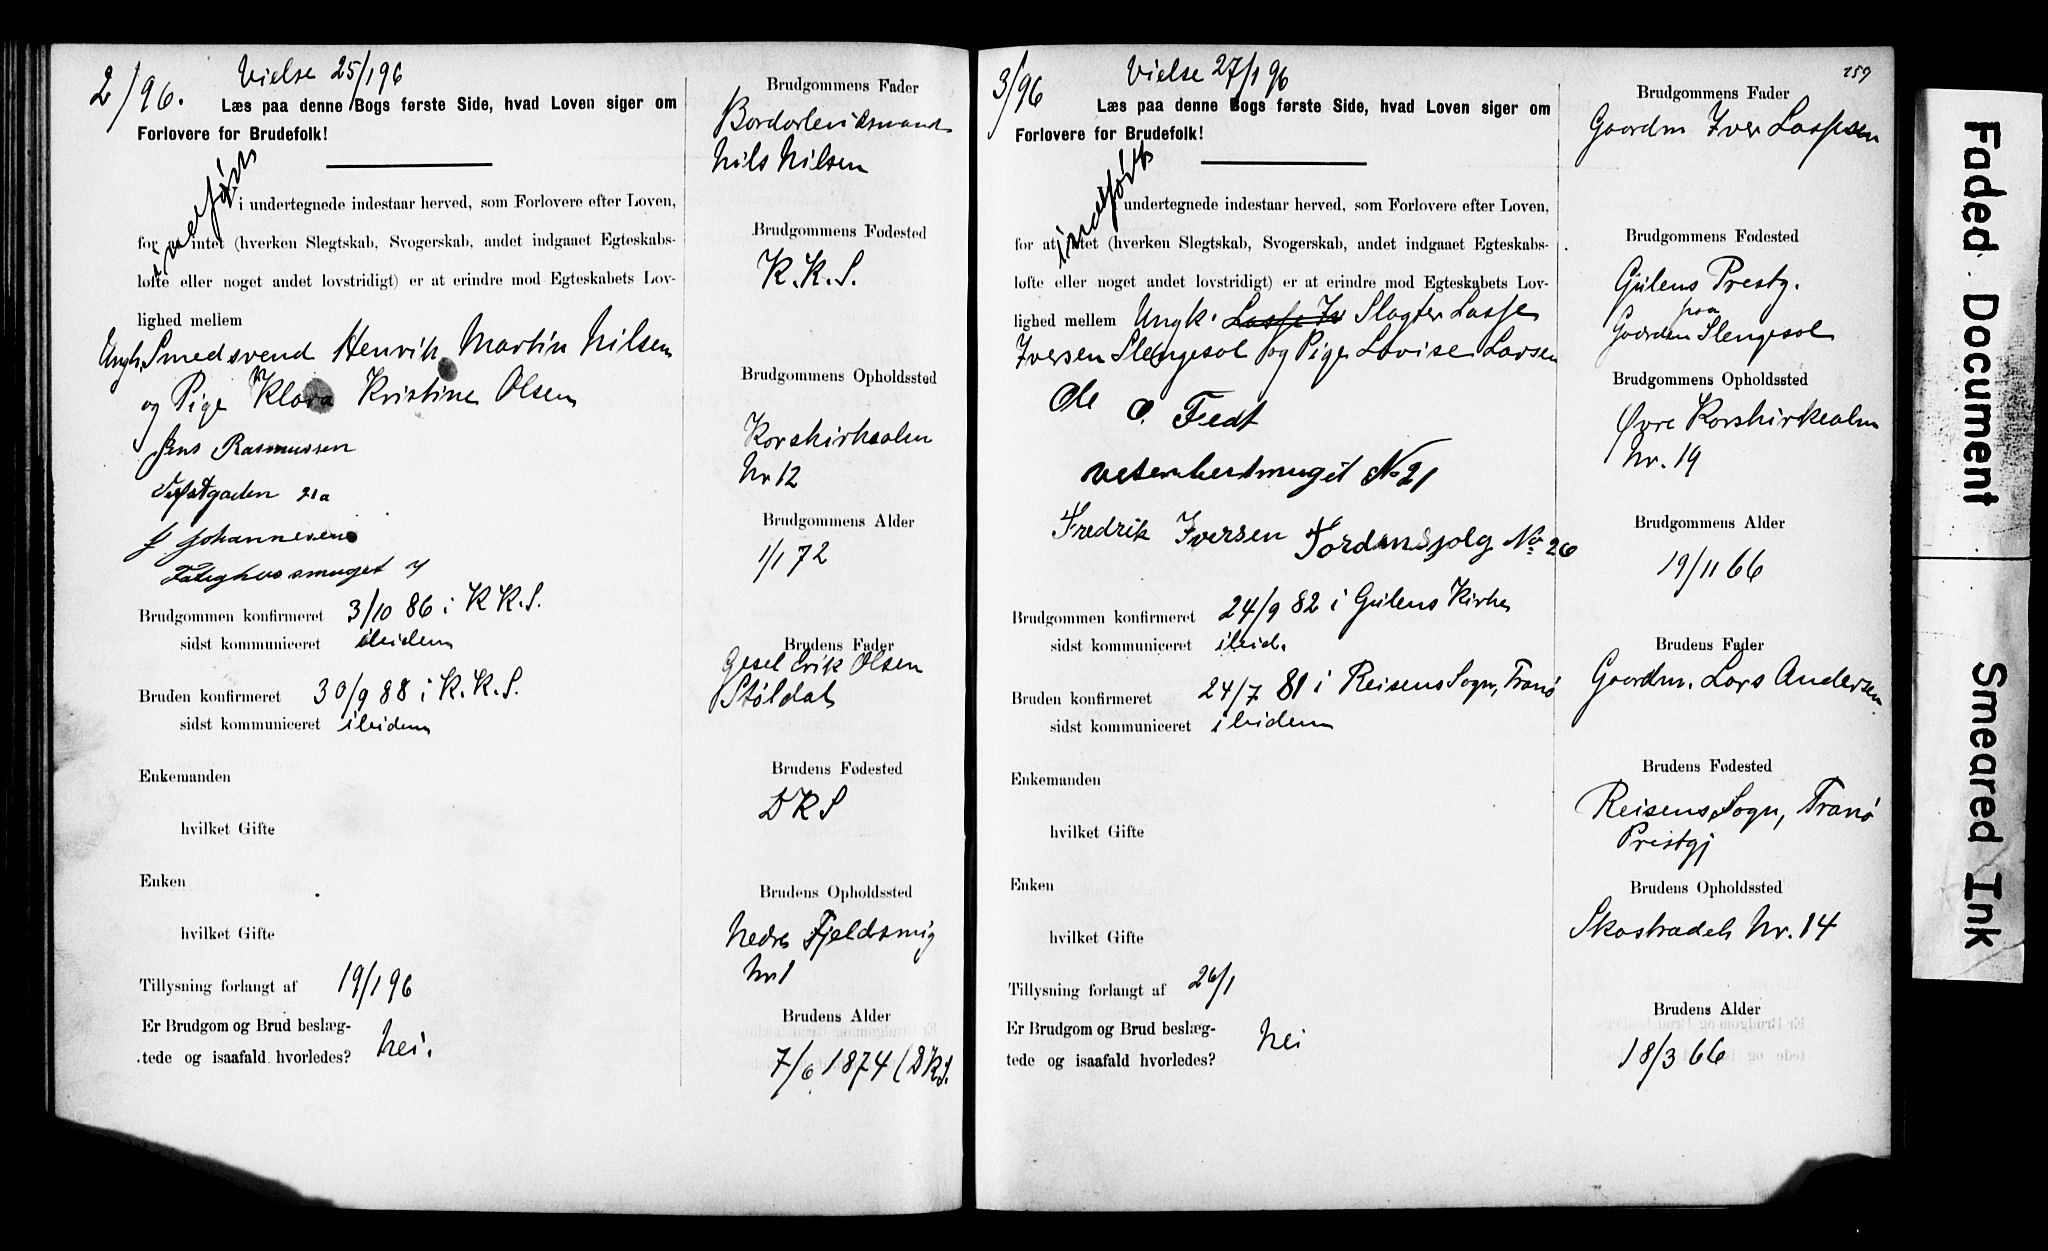 2/96.
Vielse 25/1 96
Læs paa denne Bogs første Side, hvad Loven siger om
Forlovere for Brudefolk!
indført
Vi undertegnede indestaar herved, som Forlovere efter Loven,
for at intet (hverken Slegtskab, Svogerskab, andet indgaaet Egteskabs-
løfte eller noget andet lovstridigt) er at erindre mod Egteskabets Lov-
lighed mellem
Ungk. Smedsvend Henrik Martin Nilsen
og Pige Klara Kristine Olsen
Jens Rasmussen
21a
J Johannesen
Fatighussmuget 7
Brudgommen konfirmeret 3/10 86 i K.K.S.
sidst kommuniceret ibidem
Bruden konfirmeret 30/9 88 i K.K.S.
sidst kommuniceret ibidem
Enkemanden
hvilket Gifte
Enken
hvilket Gifte
Tillysning forlangt af 19/1 96
Er Brudgom og Brud beslæg-
tede og isaafald hvorledes? Nei.
Brudgommens Fader
Nils Nilsen
Brudgommens Fødested
K.K.S.
Brudgommens Opholdssted
Korskirkealm
Nr 12
Brudgommens Alder
1/1 72
Brudens Fader
Gesel Erik Olsen
Støldal
Brudens Fødested
DKS
Brudens Opholdssted
Nedre Fjeldsmig
Nr 1
Brudens Alder
7/6 1874 (DKS.
3/96
Vielse 27/1 96
159
Læs paa denne Bogs første Side, hvad Loven siger om
Forlovere for Brudefolk!
indført
undertegnede indestaar herved, som Forlovere efter Loven,
for at intet (hverken Slegtskab, Svogerskab, andet indgaaet Egteskabs-
løfte eller noget andet lovstridigt) er at erindre mod Egteskabets Lov-
lighed mellem Ungk. Lasse Iv Slagter Lasse
Iversen Slengesol og Pige Lovise Larsen
Ole O. Fedt
No 21
Fredrik Iversen Tordenskjolg No 26
Brudgommen konfirmeret 24/9 82 i Gulens Kirke
sidst kommuniceret ibid.
Bruden konfirmeret 24/7 81 i Reisens Sogn, Tranø
sidst kommuniceret ibidem
Enkemanden
hvilket Gifte
Enken
hvilket Gifte
Tillysning forlangt af 26/1
Er Brudgom og Brud beslæg-
tede og isaafald hvorledes? Nei
Brudgommens Fader
Gaardm Iver Lassesen
Brudgommens Fødested
Gulens Prestg.
paa
Gaarden Slengesol
Brudgommens Opholdssted
Øvre Korskirkealm
Nr. 19
Brudgommens Alder
19/11 66
Brudens Fader
Gaardm. Lars Andersen
Brudens Fødested
Reisens Sogn, Tranø
Prestgj
Brudens Opholdssted
Skostrædet Nr. 14
Brudens Alder
18/3 66
Faded Document
Smeared Ink